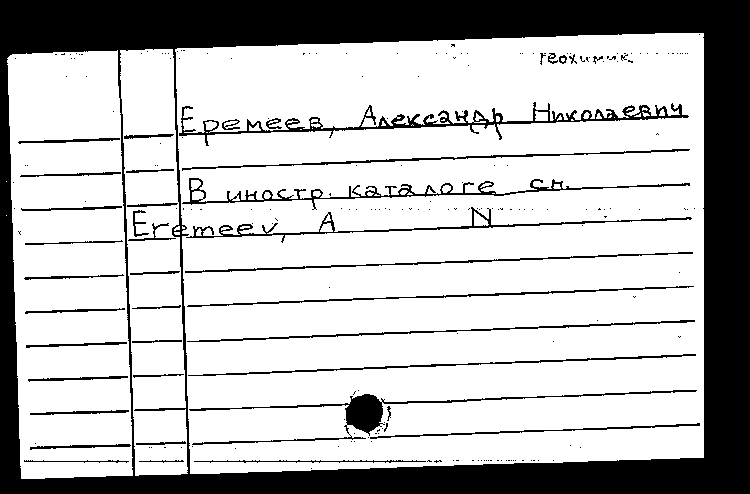 геохимик
Еремеев, Александр Николаевич
В иностр. каталоге см.
Eremeev, A N